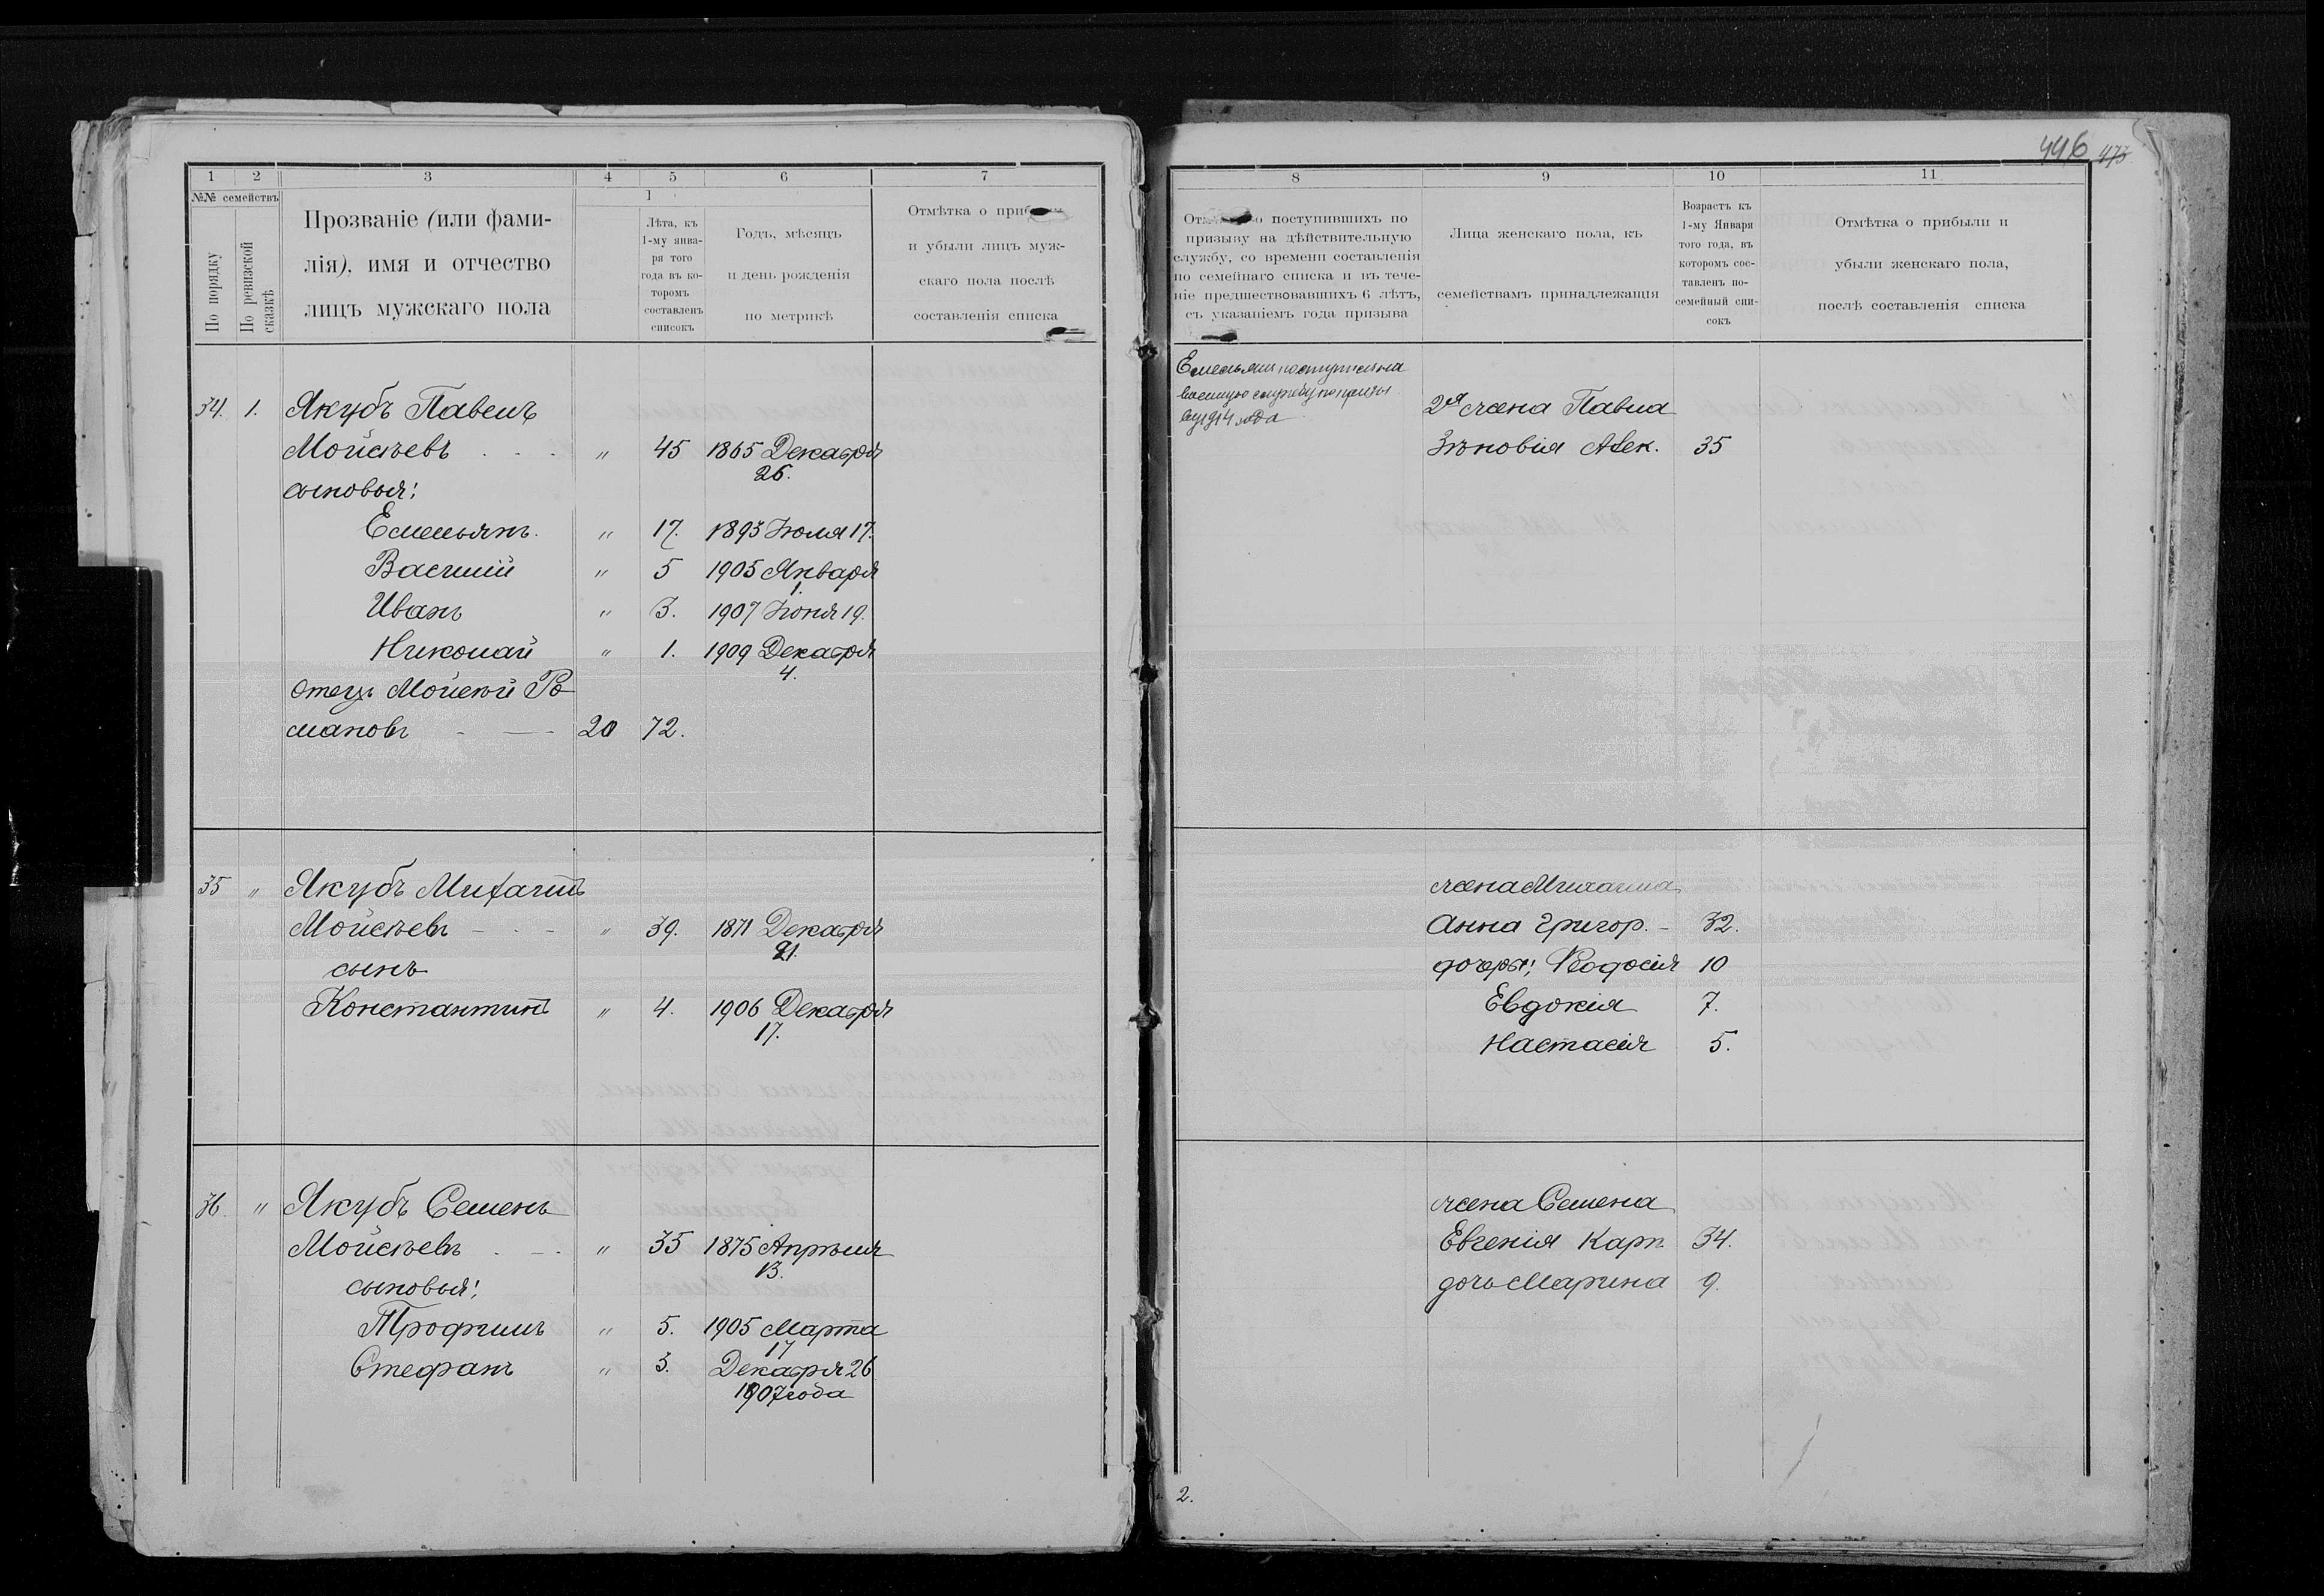 446 473
1 2 3 4 5 6 7
№№ семействъ
По порядку
По ревизской сказкѣ
Прозваніе (или фами-
лія), имя и отчество
лицъ мужскаго пола
Лѣта, къ
1-му янва-
ря того
года въ ко-
торомъ
составленъ
списокъ
Годъ, мѣсяцъ
и день рожденія
по метрикѣ
Отмѣтка о
и убыли лицъ муж-
скаго пола послѣ
составленія списка
34. 1. Якубъ Павелъ
Мойсѣевъ " 45 1865 Декабря
26.
сыновья:
Емельянъ. " 17. 1893 Іюля 17.
Василій " 5 1905 Января
1.
Иванъ " 3. 1907 Іюня 19.
Николай " 1. 1909 Декабря
4.
Отецъ Мойсей Ро
мановъ 20 72.
35 " Якубъ Михаилъ
Мойсѣевъ " 39. 1871 Декабря
21.
сынъ
Константинъ " 4. 1906 Декабря
17.
36. " Якубъ Семенъ
Мойсѣевъ " 35 1875 Апрѣля
13.
сыновья:
Трофимъ " 5. 1905 Марта
17
Стефанъ " 3. Декабря 26
1907 года
8 9 10 11
о поступившихъ по
призыву на дѣйствительную
службу, со времени составленія
по семейнаго списка и въ тече-
ніе предшествовавшихъ 6 лѣтъ,
съ указаніемъ года призыва
Лица женскаго пола, къ
семействамъ принадлежащія
Возрастъ къ
1-му Января
того года, въ
которомъ сос-
тавленъ по-
семейный спи-
сокъ
Отмѣтка о прибыли и
убыли женскаго пола,
послѣ составленія списка
Емельян поступил на
военную службу по призы
ву 1914 года
2я жена Павла
Зѣновія Алек. 35
жена Михаила
Анна Григор. 32.
дочери: Ѳеодосія 10
Евдокія 7.
Настасія 5.
жена Семена
Евгенія Карп 34.
дочь Марина 9.
2.